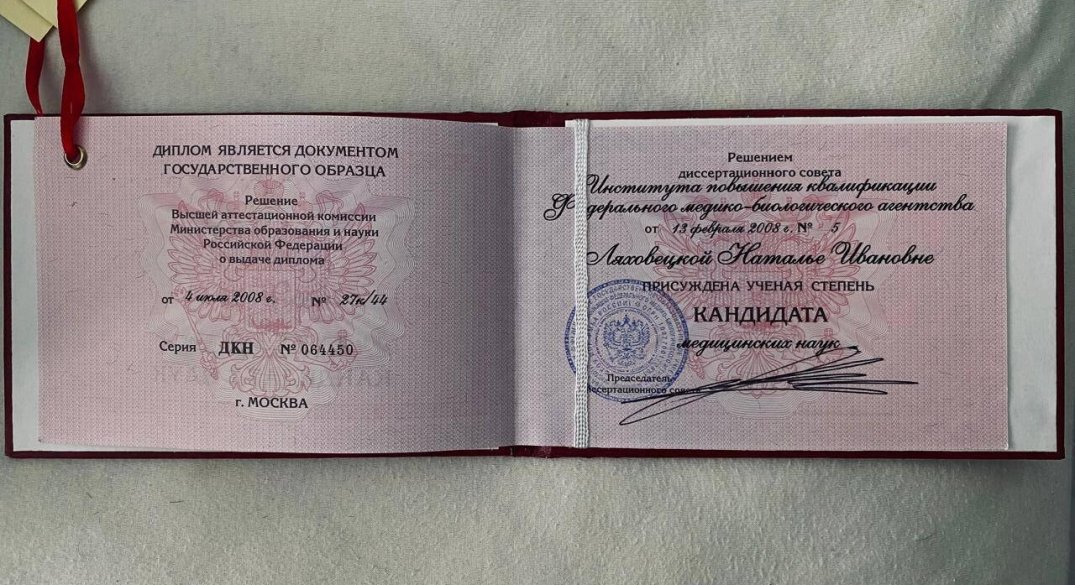 ДИПЛОМ ЯВЛЯЕТСЯ ДОКУМЕНТОМ
ГОСУДАРСТВЕННОГО ОБРАЗЦА
Решение
Высшей аттестационной комиссии
Министерства образования и науки
Российской Федерации
о выдаче диплома
от 4 июля 2008 г. № 27к/44
Серия ДКН № 064450
г. МОСКВА
Решением
диссертационного совета
Института повышения квалификации
Федерального медико-биологического агентства
от 13 февраля 2008 г. № 5
Ляховецкой Наталье Ивановне
ПРИСУЖДЕНА УЧЕНАЯ СТЕПЕНЬ
КАНДИДАТА
медицинских наук
Председатель
диссертационного совета